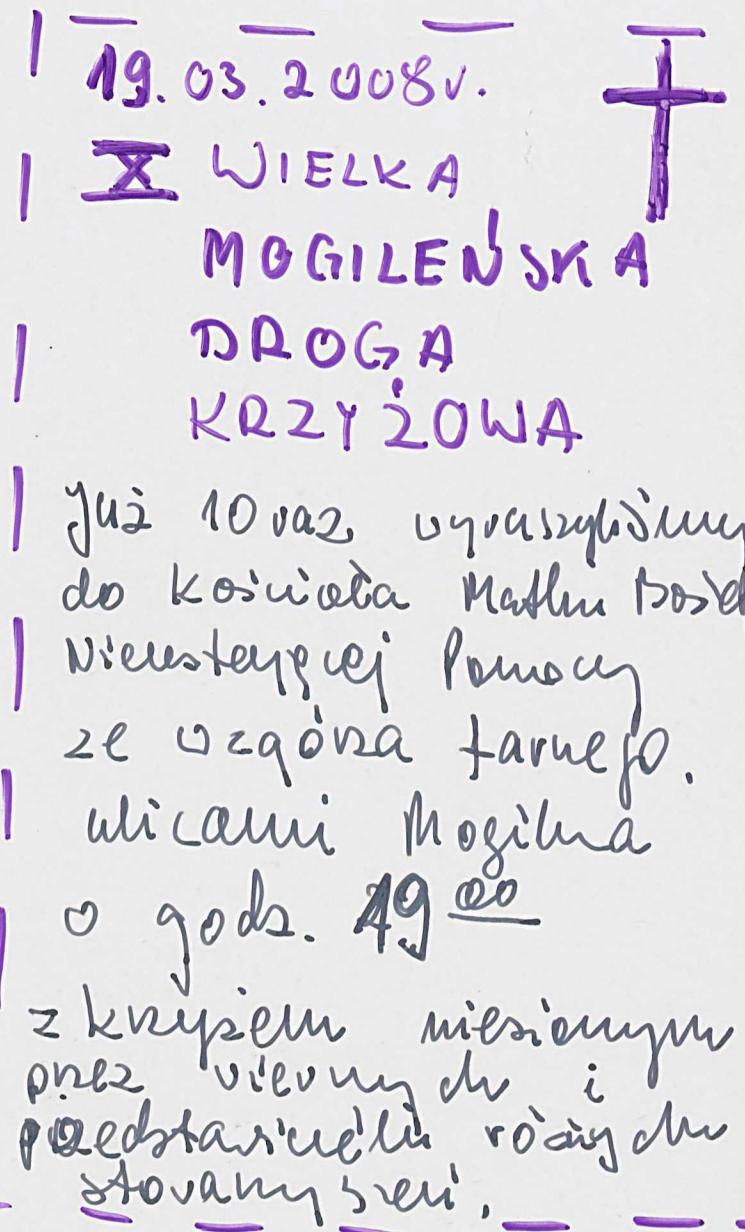 19.03.2008r.
X WIELKA
MOGILEŃSKA
DROGA
KRZYŻOWA
Już 10 raz wyruszyliśmy
do Kościoła Matki Bożej
Nieustającej Pomocy
ze wzgórza farnego.
ulicami Mogilna
o godz. 19 00
z krzyżem niesionym
przez wiernych i
przedstawicieli różnych
stowarzyszeń.